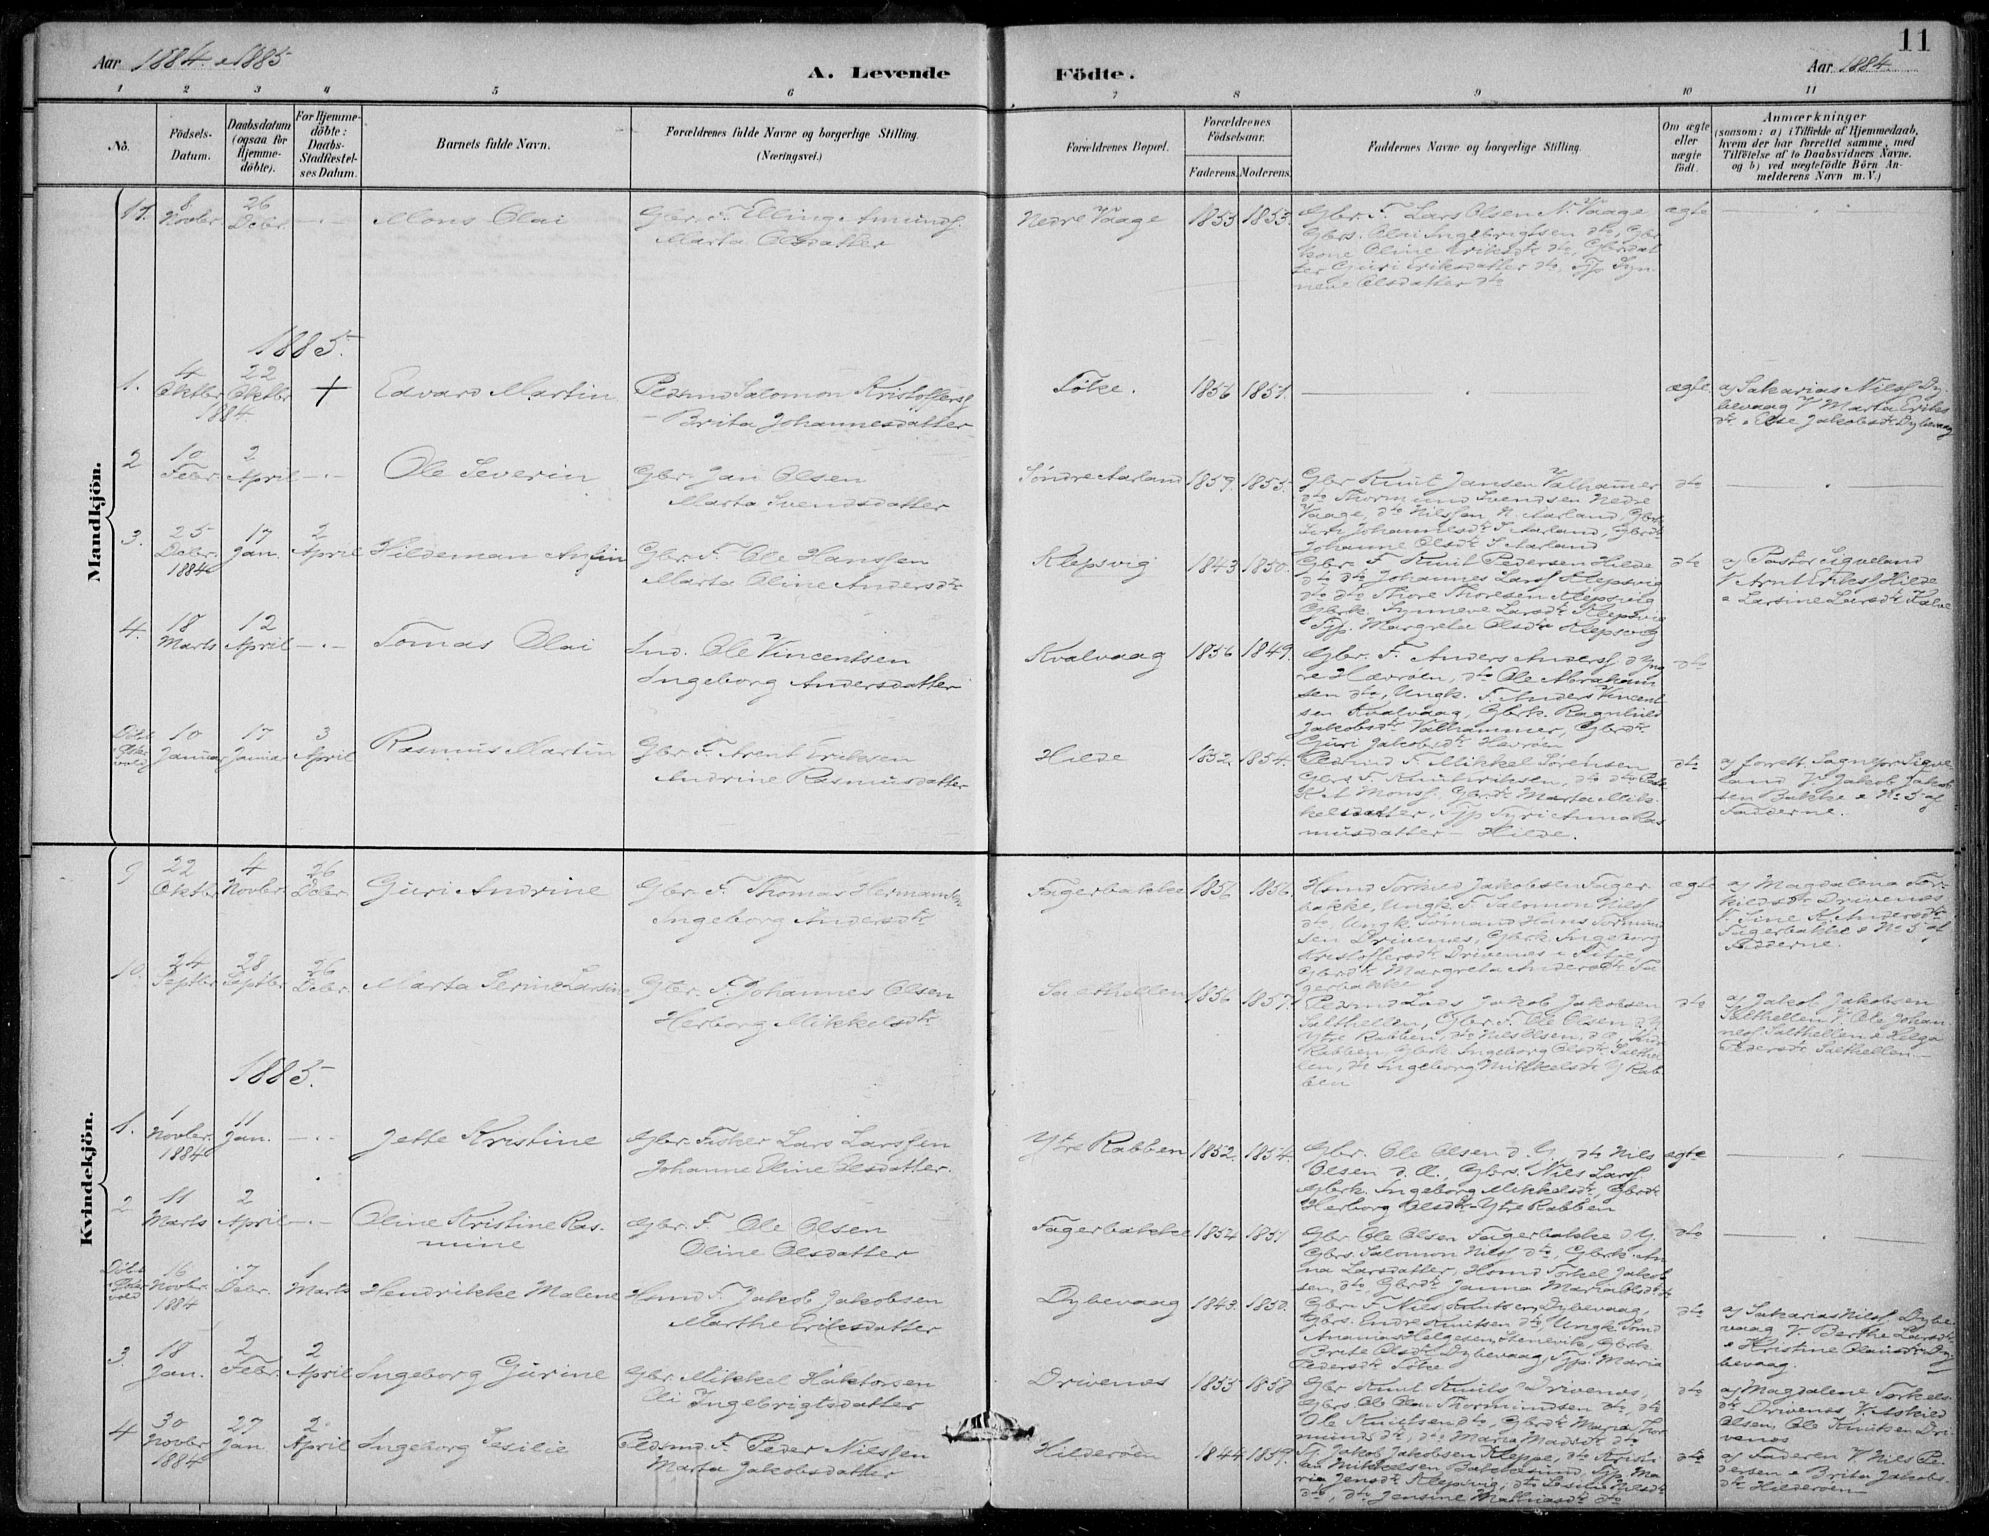 Aar 1884 & 1885
A. Levende
Födte.
Aar 1884
11
1 2 3 4 5 6 7 8 9 10 11
No.
Födsels-
Datum.
Daabsdatum
(ogsaa for
Hjemme-
döbte).
For Hjemme-
döbte:
Daabs-
Stadfæstel-
ses Datum.
Barnets fulde Navn.
Forældrenes fulde Navne og borgerlige Stilling.
(Næringsvei.)
Forældrenes Bopæl.
Forældrenes
Födselsaar.
Faderens. Moderens.
Faddernes Navne og borgerlige Stilling.
Om ægte
eller
uægte
födt.
Anmærkninger
(saasom: a) i Tilfælde af Hjemmedaab,
hvem der har forrettet samme, med
Tilföielse af to Daabsvidners Navne.
og b) ved uægtefödte Börn An-
melderens Navn m. V.)
Mandkjön.
8 Novbr. 26 Debr. Mons Olai
Gbr. F. Elling Amunds.
Marta Olsdatter
Nedre Vaage 1853 1853.
Gbr. F. Lars Olsen N. Vaage
Gbrs. Olai Ingebrigtsen dto, Gbr
kone Oline Eriksdtr dto, Gbrdat
ter Guri Eriksdatter dto, Tjp Syn
neve Olsdatter dto
ægte
1885.
1. 4 Oktbr 1884 22 Oktbr + Edvard Martin
Pedsmd Salomon Kristoffers
Brita Johannesdatter
Töke. 1856 1851.
ægte
a) Sakarias Nilss Dy-
bevaag V Marta Eriks
dtr & Else Jakobsdtr Dybevaag
2 10 Febr 2 April Ole Severin
Gbr. Jan Olsen
Marta Svendsdatter
Söndre Aarland 1859. 1855.
Gbr Knut Jansen Valhammer
dto Thormund Svendsen Nedre
Vaage, dto Nilssen N. Aarland, Gbrk.
Johannesdtr S Aarland, Gbrdtr
Johanne Olsdtr S Aarland
dto
3. 25 Debr. 1884 17 Jan. 2 April Hildeman Anfin
Gbr. F. Ole Hanssen
Marta Oline Andersdtr
Klepsvig 1843 1850.
Gbr. F. Knut Pedersen Hilde
dto dto Johannes Larss Klepsvig
dto dto Thore Thoresen Klepsvig
Gbrk. Synneve Larsdtr Klepsvig
Tjp. Margreta Olsdtr Klepsvig
dto
a) Pastor Sigveland
V Arnt Erikss Hilde
& Larsine Larsdtr
4. 18 Marts 12 April Tomas Olai
Ind. Ole Vincentsen
Ingeborg Andersdatter
Kvalvaag 1856 1849.
Gbr. F. Anders Anderss d Yng
re Hevröen, dto Ole Abraham
sen dto, Ungk. F. Anders Vincent
sen Kvalvaag, Gbrk. Ragnhild
Jakobsdtr Valhammer, Gbrdtr
Guri Jakobsdtr Hevröen
dto
10 Januar 17 Januar 3 April Rasmus Martin
Gbr. F. Arent Eriksen
Andrine Rasmusdatter
Hilde 1852. 1854.
Pedsmd F. Mikkel Sörensen
Gbrs F. Knut Eriksen, dto dto
Monss. Gbrdtr Marta Mik-
kelsdatter, Tjp Syri Anna Ras
musdatter - Hilde.
dto
a) forrett. Sognepr Sigve
land V. Jakob Jakob
sen Bakke & No 5 af
Fadderne.
Kvindekjön.
9 22 Oktbr 4 Novbr. 26 Debr Guri Andrine
Gbr. F. Thomas Hermands.
Ingeborg Andersdtr
Fagerbakke 1856 1856.
Hsmd Torkild Jakobsen Fager
bakke, Ungk. F. Salomon Nilss
dto, Ungk. Sömand Hans Tormund
sen Drivenes, Gbrk. Ingeborg
Kristoffersdtr Drivenes i Fitje
Gbrdtr Margreta Andersdtr Fa
gerbakke
ægte
a) Magdalena Tor-
kildsdtr Drivenes
V. Sine K. Andersdtr
Fagerbakke & No 5 af
Fadderne.
10. 24 Septbr 28 Septbr. 26 Debr. Marta Serine Larsine
Gbr. F. Johannes Olsen
Herborg Mikkelsdtr
Salthellen 1856 1857.
Pedsmd Lods Jakob Jakobsen
Salthellen, Gbr. F. Ole Olsen d. Y.
Ytre Rabben, dto Nils Olsen, d. Æ,
Rabben, Gbrk Ingeborg Olsdtr Salthel
len, dtr Ingeborg Mikkelsdtr Y Rab
ben
dto
a) Jakob Jakobsen
Salthellen V Ole Johan
ness Salthellen & Helga
Pedersdtr Salthellen.
1885.
1. 1 Novbr. 1884 11 Jan. Jette Kristine
Gbr. Fisker Lars Larssen
Johanne Oline Olsdatter.
Ytre Rabben 1852. 1854.
Gbr. Ole Olsen d. Y, dto Nils
Olsen d. Æ., Gbrs. Nils Larss
Gbrk. Ingeborg Mikkelsdtr, Gbrdtr
Herborg Olsdtr - Ytre Rabben
ægte
2 11 Marts 2 April Oline Kristine Ras-
mine
Gbr. F. Ole Olsen
Oline Olsdatter
Fagerbakke 1854 1851
Gbr Ole Olsen Fagerbakke d Y.
Gbrs. Salomon Nilss dto, Gbrk. An
na Larsdatter, Hsmd Torkel Jakob
sen, dto, Gbrdtr Janna Maria Olsdtr
dto
16 Novbr. 1884 7 Debr. 1 Marts Hendrikke Malene
Hsmd F. Jakob Jakobsen
Marthe Eriksdatter
Dybevaag 1843. 1850.
Gbr. F. Nils Knutsen Dybevaag,
Gbrs. Endre Knutsen dto, Ungk Smd
Ananias Helgesen Stenevik, Gbrk.
Brite Olsdtr Dybevaag, Tjp. Maria
Pedersdtr Töke
dto
a) Sakarias Nilss, Dybe
vaag V. Berthe Larsdtr
& Kristine Olausdtr Dy
bevaag.
3. 18 Jan. 2 Febr 2 April Ingeborg Gurine
Gbr Mikkel Haktorsen
Oli Ingebrigtsdatter
Drivenes 1855 1858
Gbr Knut Knuts Drivenes,
Gbrs Ole Olai Thormundsen dto, dto
Ole Knutsen dto, Gbrdtr Maria Thor
mundsdtr, dto Maria Madsdtr dto
dto
a) Magdalene Torkels-
dtr Drivenes V. Askild
Olsen, Ole Knutsen Dri-
venes
4 30 Novbr 1884 27 Jan. 2 April Ingeborg Sesilie
Pedsmd. F. Peder Nilssen
Marta Jakobsdatter
Hilderöen 1844 1859.
F. Jakob Jakobsen Kleppe, dto Kristi
an Mikkelsen Bakkesund, Tjp Ma
ria Jensdtr Klepsvig, dto Nilsdtr
dto, dto Jensine Mathiasdtr dto
dto
a) Faderen V Nils Pe-
dersen & Brita Jakobs-
dtr Hilderöen